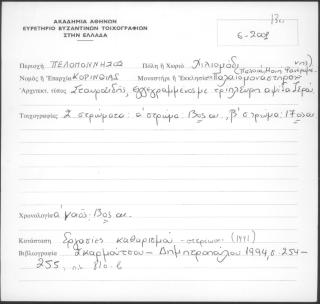 ΑΚΑΔΗΜΙΑ ΑΘΗΝΩΝ
ΕΥΡΕΤΗΡΙΟ ΒΥΖΑΝΤΙΝΩΝ ΤΟΙΧΟΓΡΑΦΙΩΝ
ΣΤΗΝ ΕΛΛΑΔΑ
13ος
6-2008
Περιοχή ΠΕΛΟΠΟΝΝΗΣΟΣ Πόλη ή Χωριό Χιλιομόδι
Νομός ή Ἐπαρχία ΚΟΡΙΝΘΙΑΣ Μοναστήρι ή Ἐκκλησία Παλαιομονάστηρο
Ἀρχιτεκτ. τύπος Σταυροειδής, εγγεγραμμένος με τρίπλευρη αψίδα Ιερού
Τοιχογραφίες 2 στρώματα: α' στρώμα: 13ος αι., β' στρώμα: 17ος αι
Χρονολογία α' ναός: 13ος αι.
Κατάσταση Εργασίες καθαρισμού - στερέωση (1991)
Βιβλιογραφία Σκαρμούτσου - Δημητροπούλου 1994, σ. 254-
255,